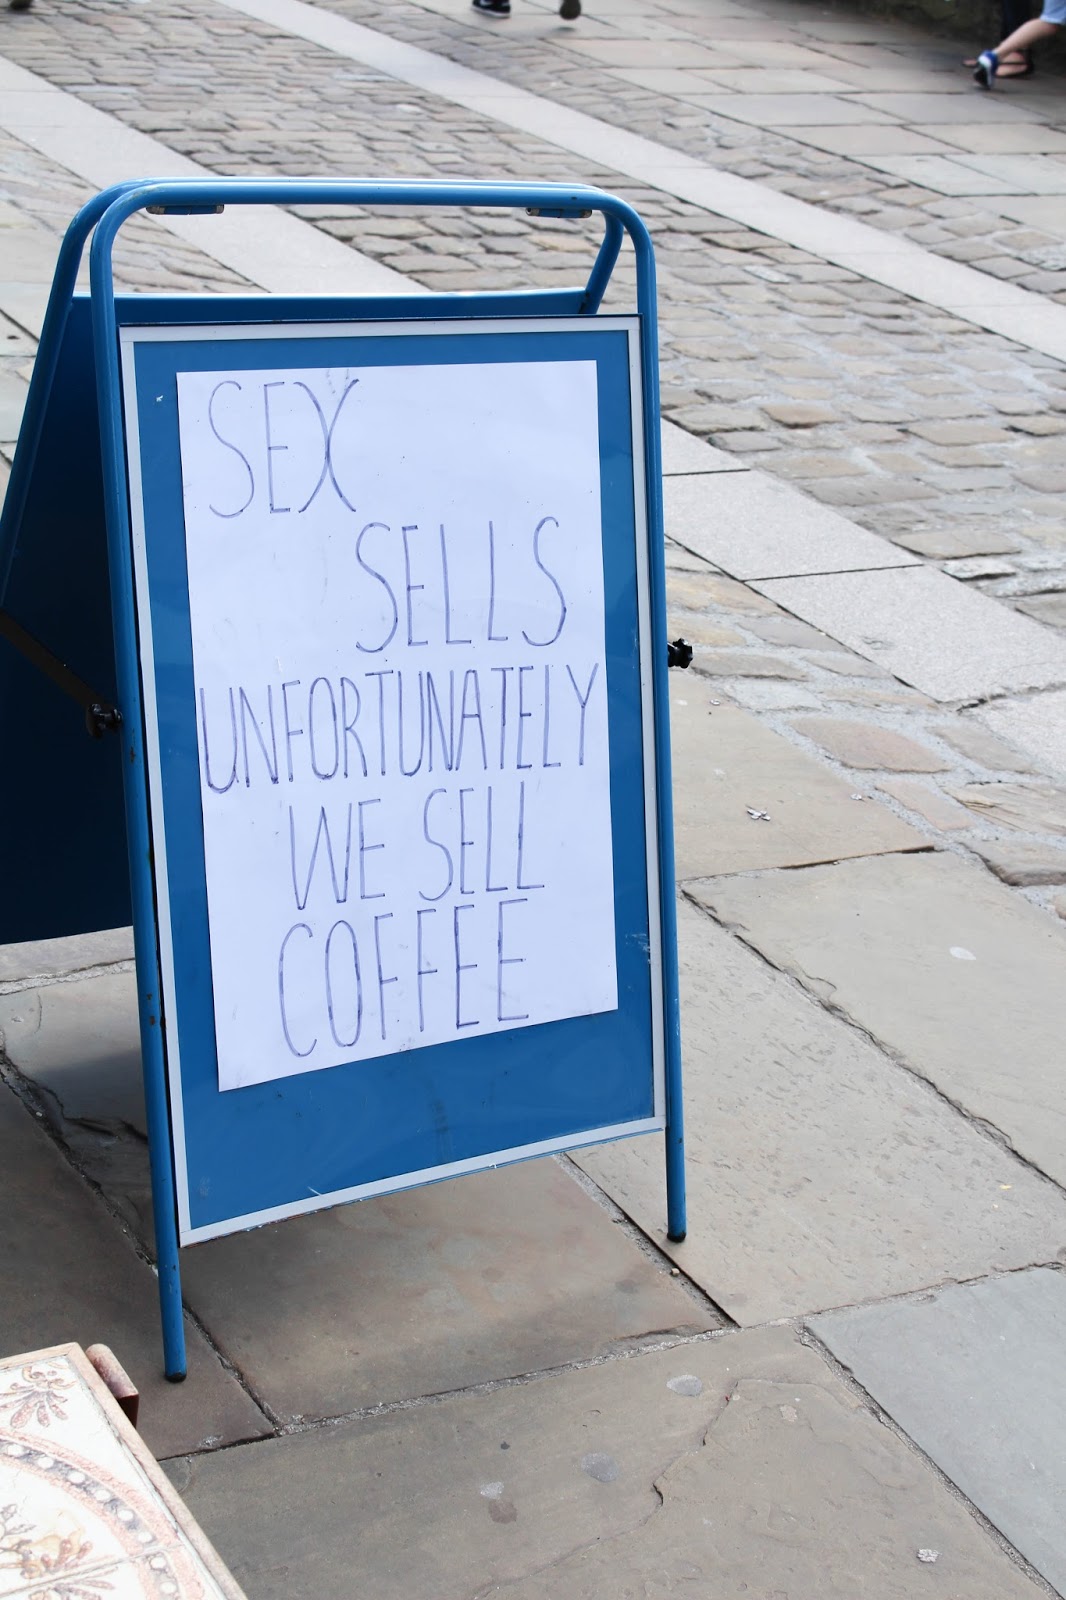 SEX
SELLS
UNFORTUNATELY
WE SELL
COFFEE